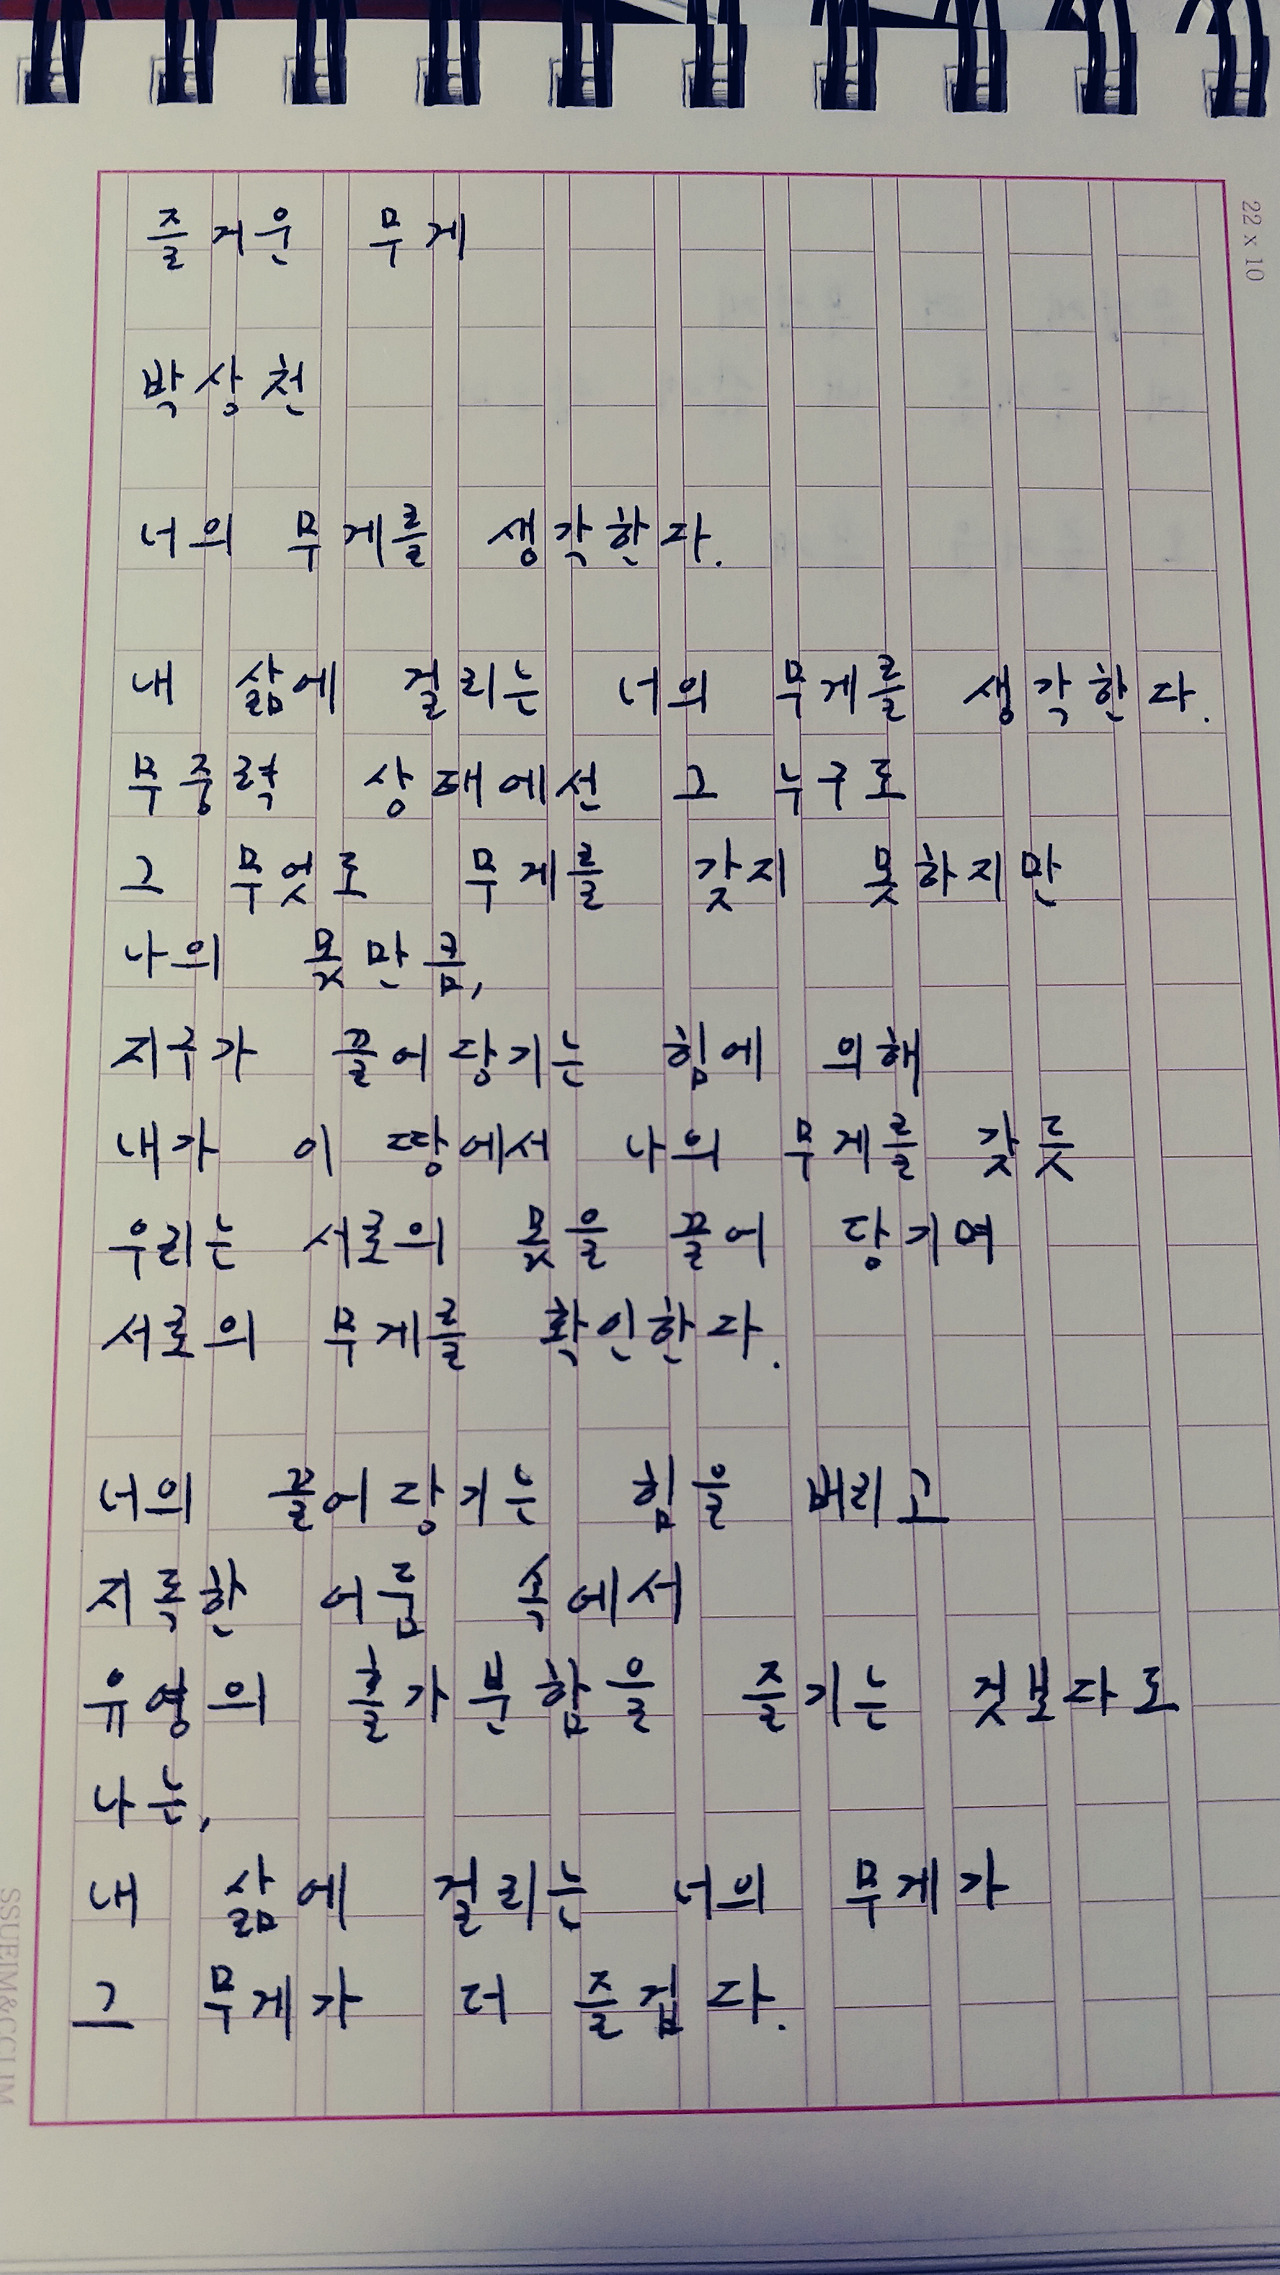 22 x 10
즐거운 무게
박상천
너의 무게를 생각한다.
내 삶에 걸리는 너의 무게를 생각한다.
무중력 상태에선 그 누구도
그 무엇도 무게를 갖지 못하지만
나의 몫만큼,
지구가 끌어당기는 힘에 의해
내가 이 땅에서 나의 무게를 갖듯
우리는 서로의 몫을 끌어 당기며
서로의 무게를 확인한다.
너의 끌어당기는 힘을 버리고
지독한 어둠 속에서
유영의 홀가분함을 즐기는 것보다도
나는,
내 삶에 걸리는 너의 무게가
그 무게가 더 즐겁다.